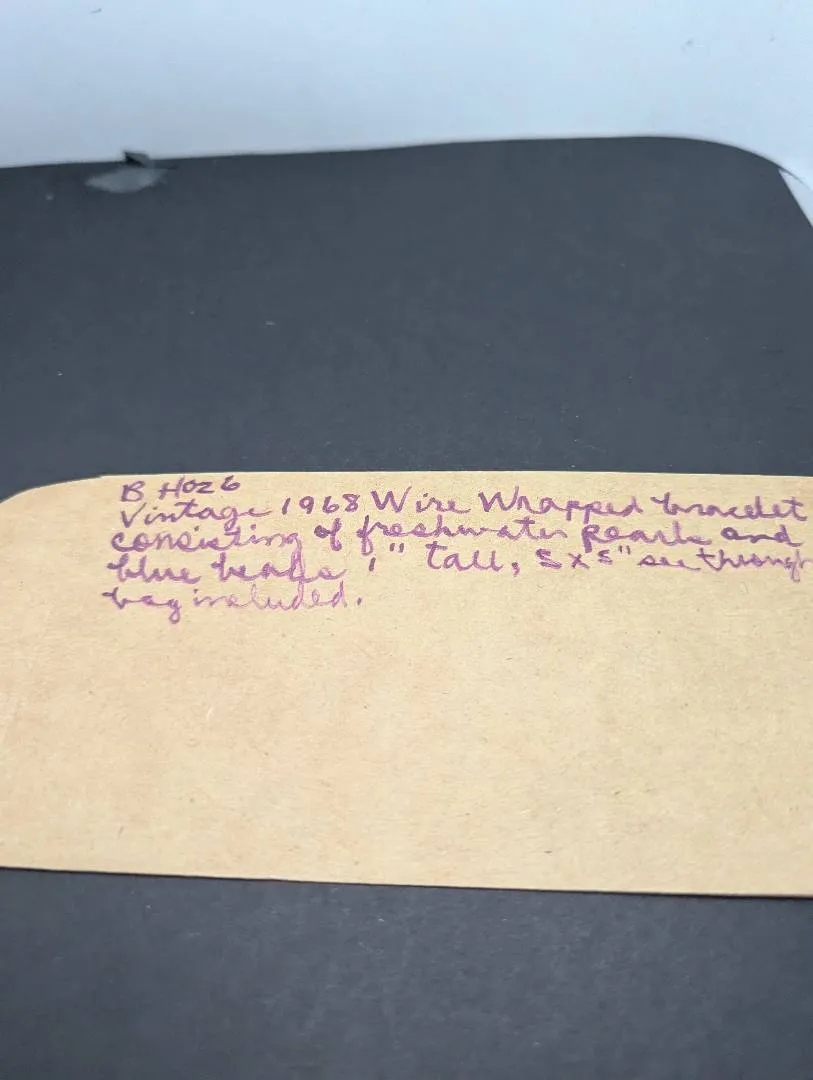 B H026
Vintage 1968 Wire Wrapped bracelet
consisting of freshwater pearls and
blue beads 1" tall, 5 x 5" see through
bag included.